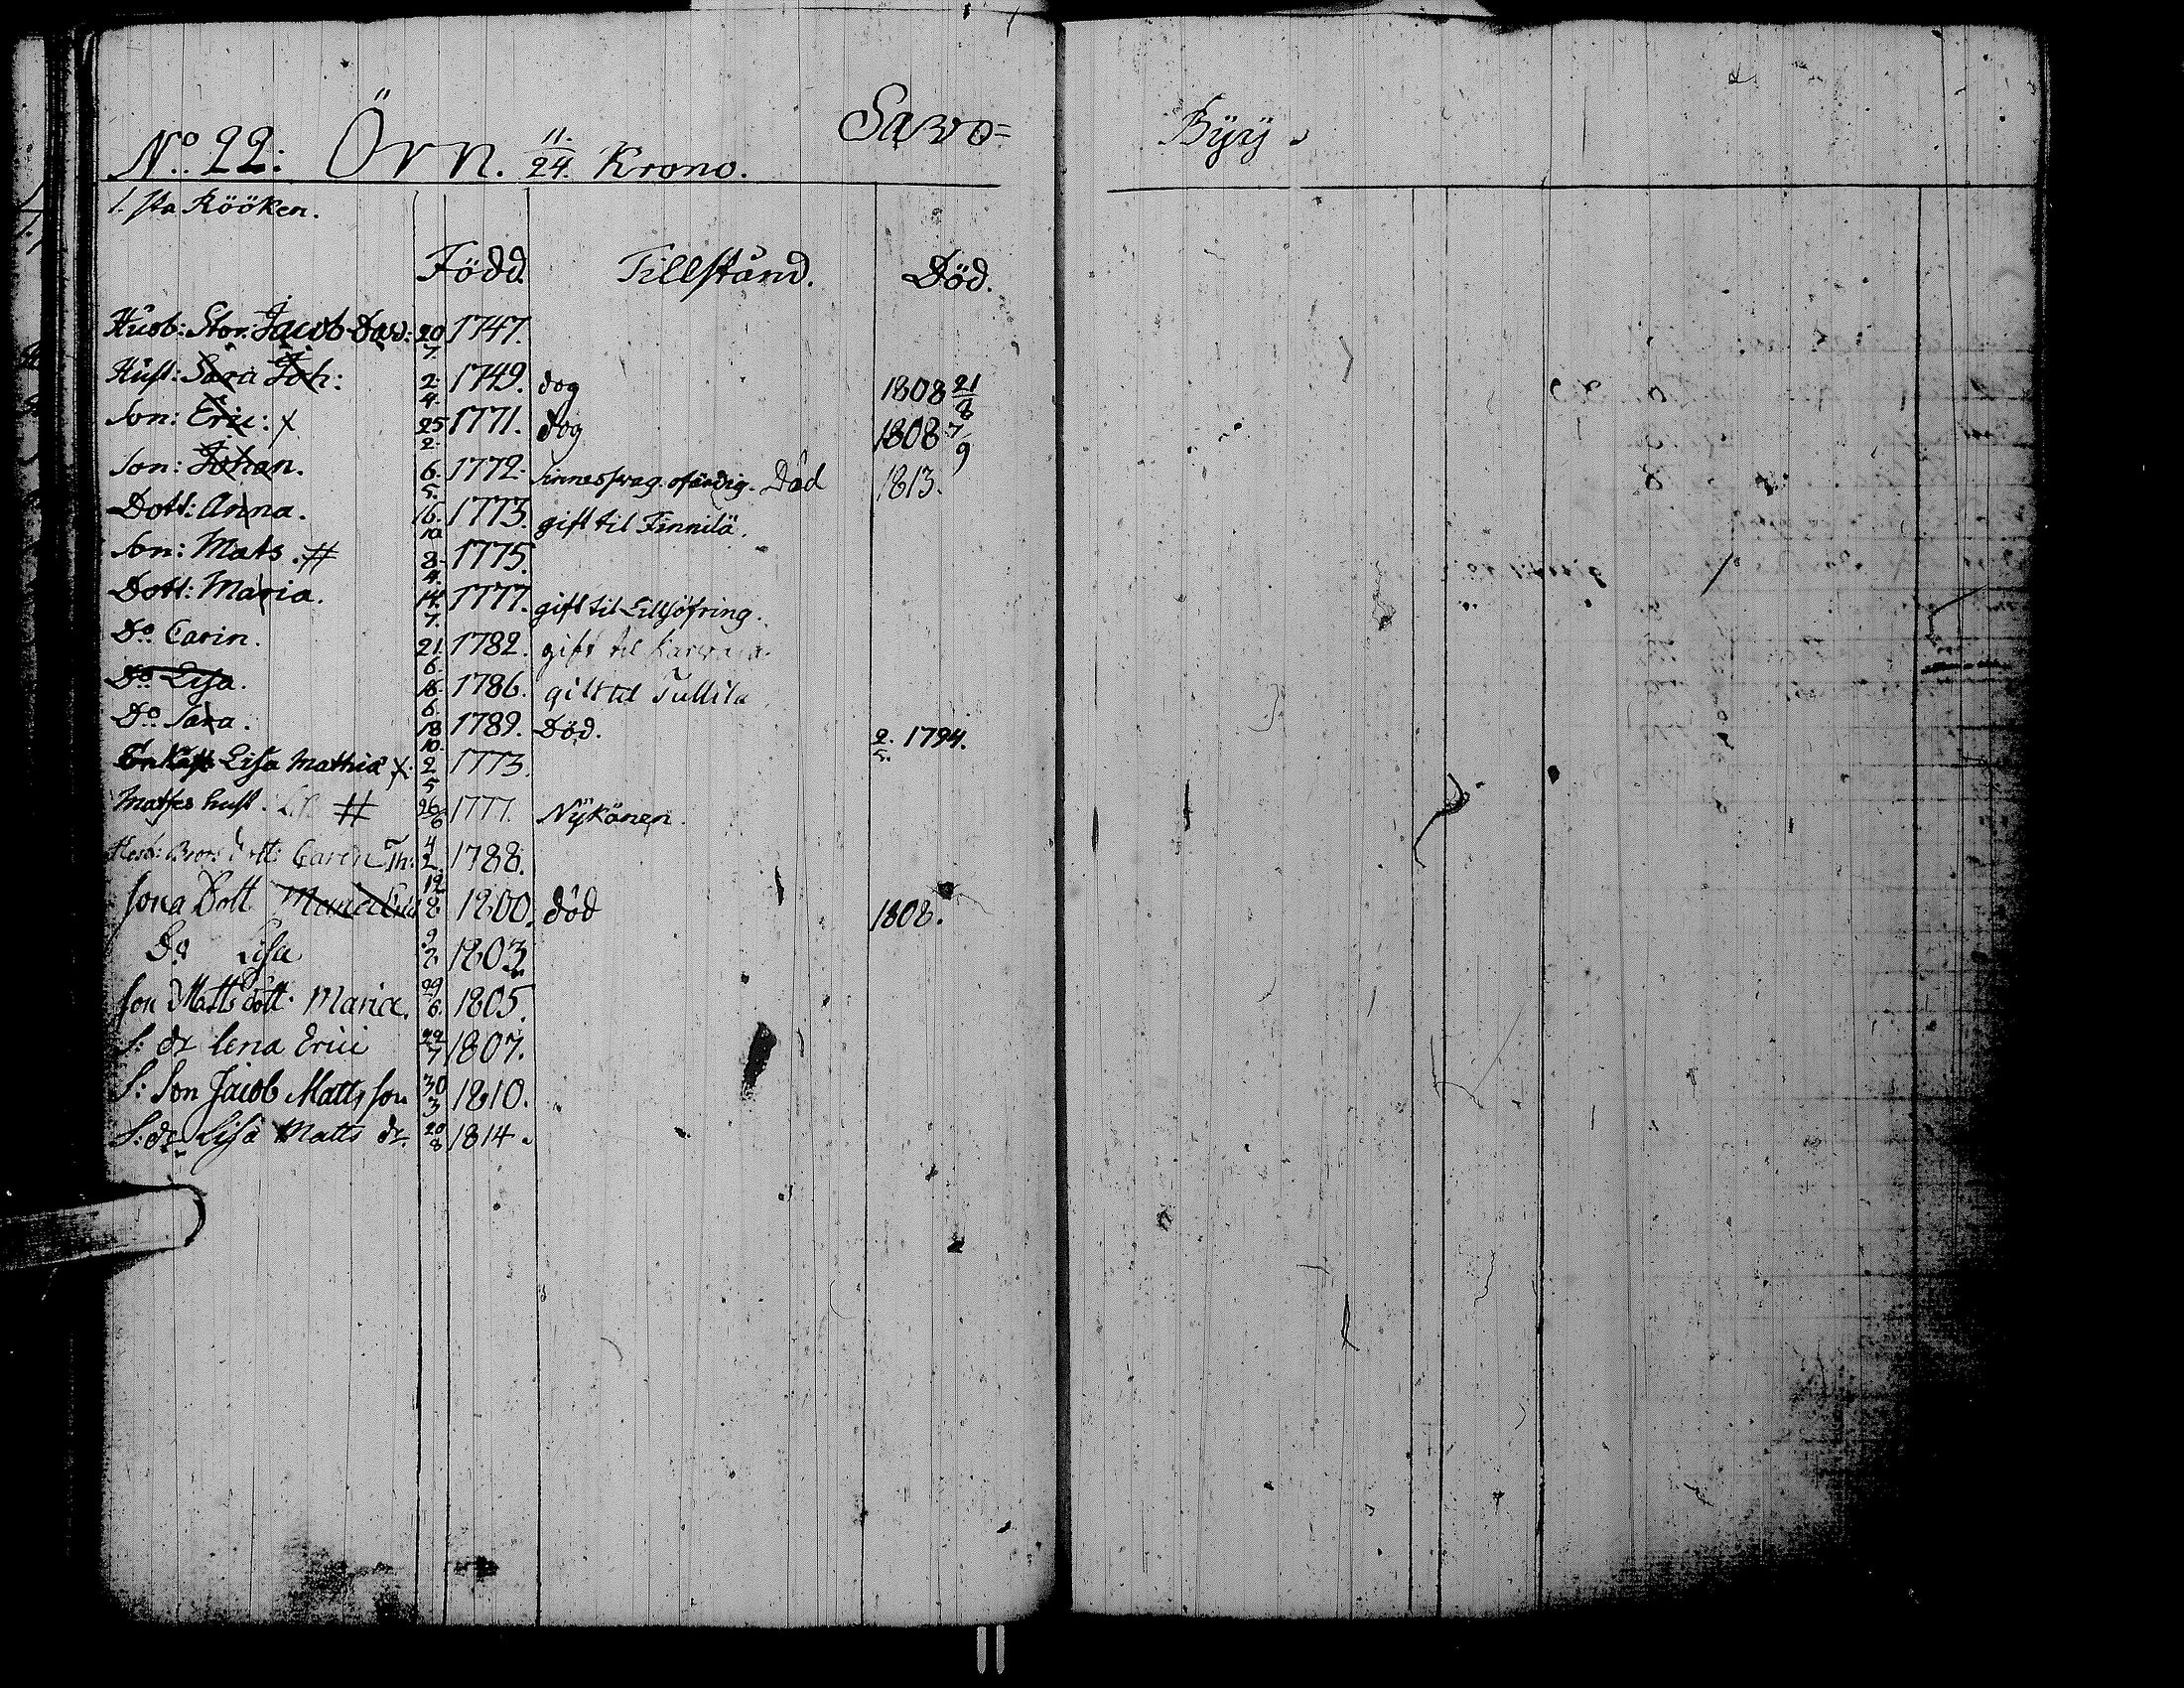 Savo= Byÿ
No. 22: Örn. 11/24. Krono.
1. sta Rööken.
Född. Tillstånd. Död.
Husb: Stor: Jacob Dav: 20/7. 1747.
Hust: Sara Joh: 2/4. 1749. dog 1808 21/8
Son: Eric: x 25/2. 1771. dog 1808 7/9
Son: Johan. 6/5. 1772. Sinnessvag. ofärdig. Död 1813.
Dott: Anna. 16/10 1773. gift til Finnilä.
Son: Mats. # 8/4. 1775.
Dott: Maria. 14/7. 1777. gift til Lilljöfring.
Do. Carin. 21/6. 1782. gift til
Do. Lisa. 18/6. 1786. gift til Tullila
Do. Sara. 18/10. 1789. Död. 2/5. 1794.
Lisa Mathiæ x 2/5 1773.
Matses hust. # 26/6 1777. Nÿkänen.
Brors dott: Carin Th: 4/2 1788.
Sona Dott Maria 12/8 1800. död 1808.
Do Lisa 9/2 1803.
Son Matts dott. Maria. 29/6. 1805.
S: dr lena Erici 22/7 1807.
S: Son Jacob Matts son 30/3 1810.
S: dr Lisa Matts dr. 20/8 1814.